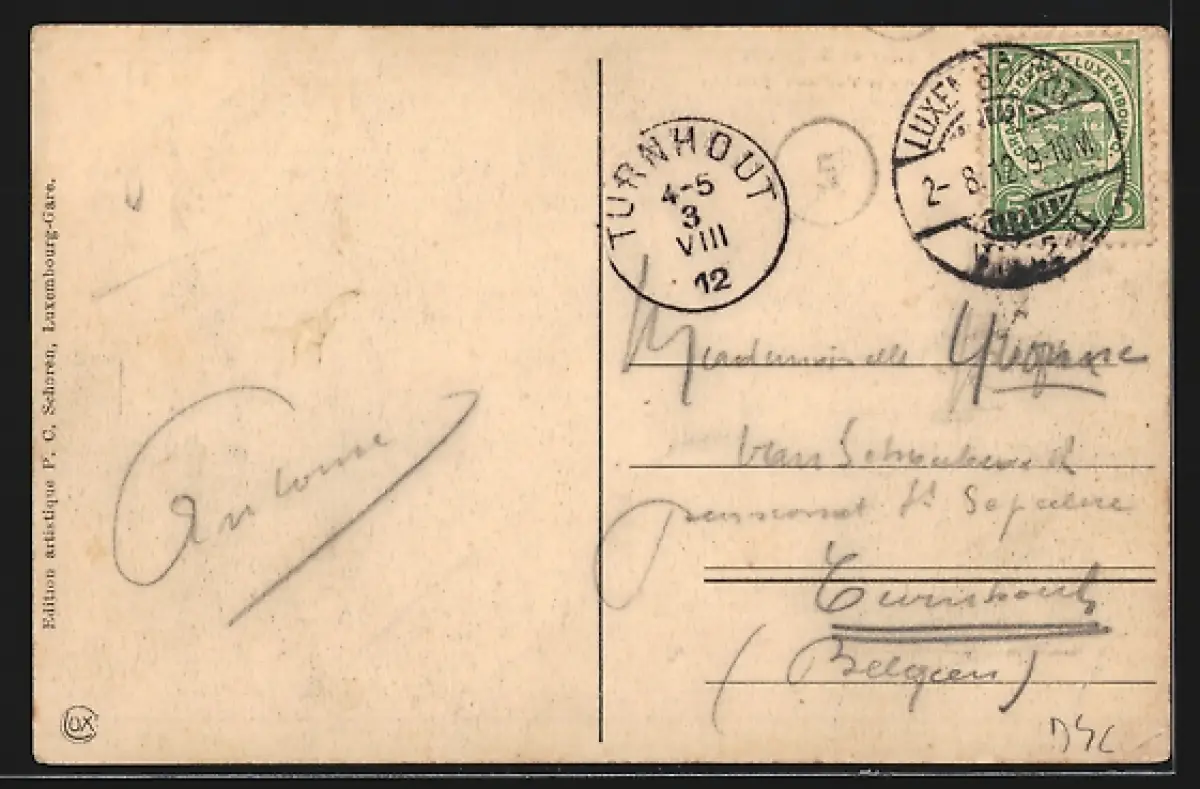 Edition artistique P. C. Schoren, Luxembourg-Gare.
TURNHOUT
4-5
3
VIII
12
5
LUXEMBOURG
2-8.12 9-10 M.
GRAND DUCHÉ DE LUXEMBOURG.
5 5
Mademoiselle Yvonne
van
pensionnat St Sepulcre
Turnhout
(Belgien)
Antoine